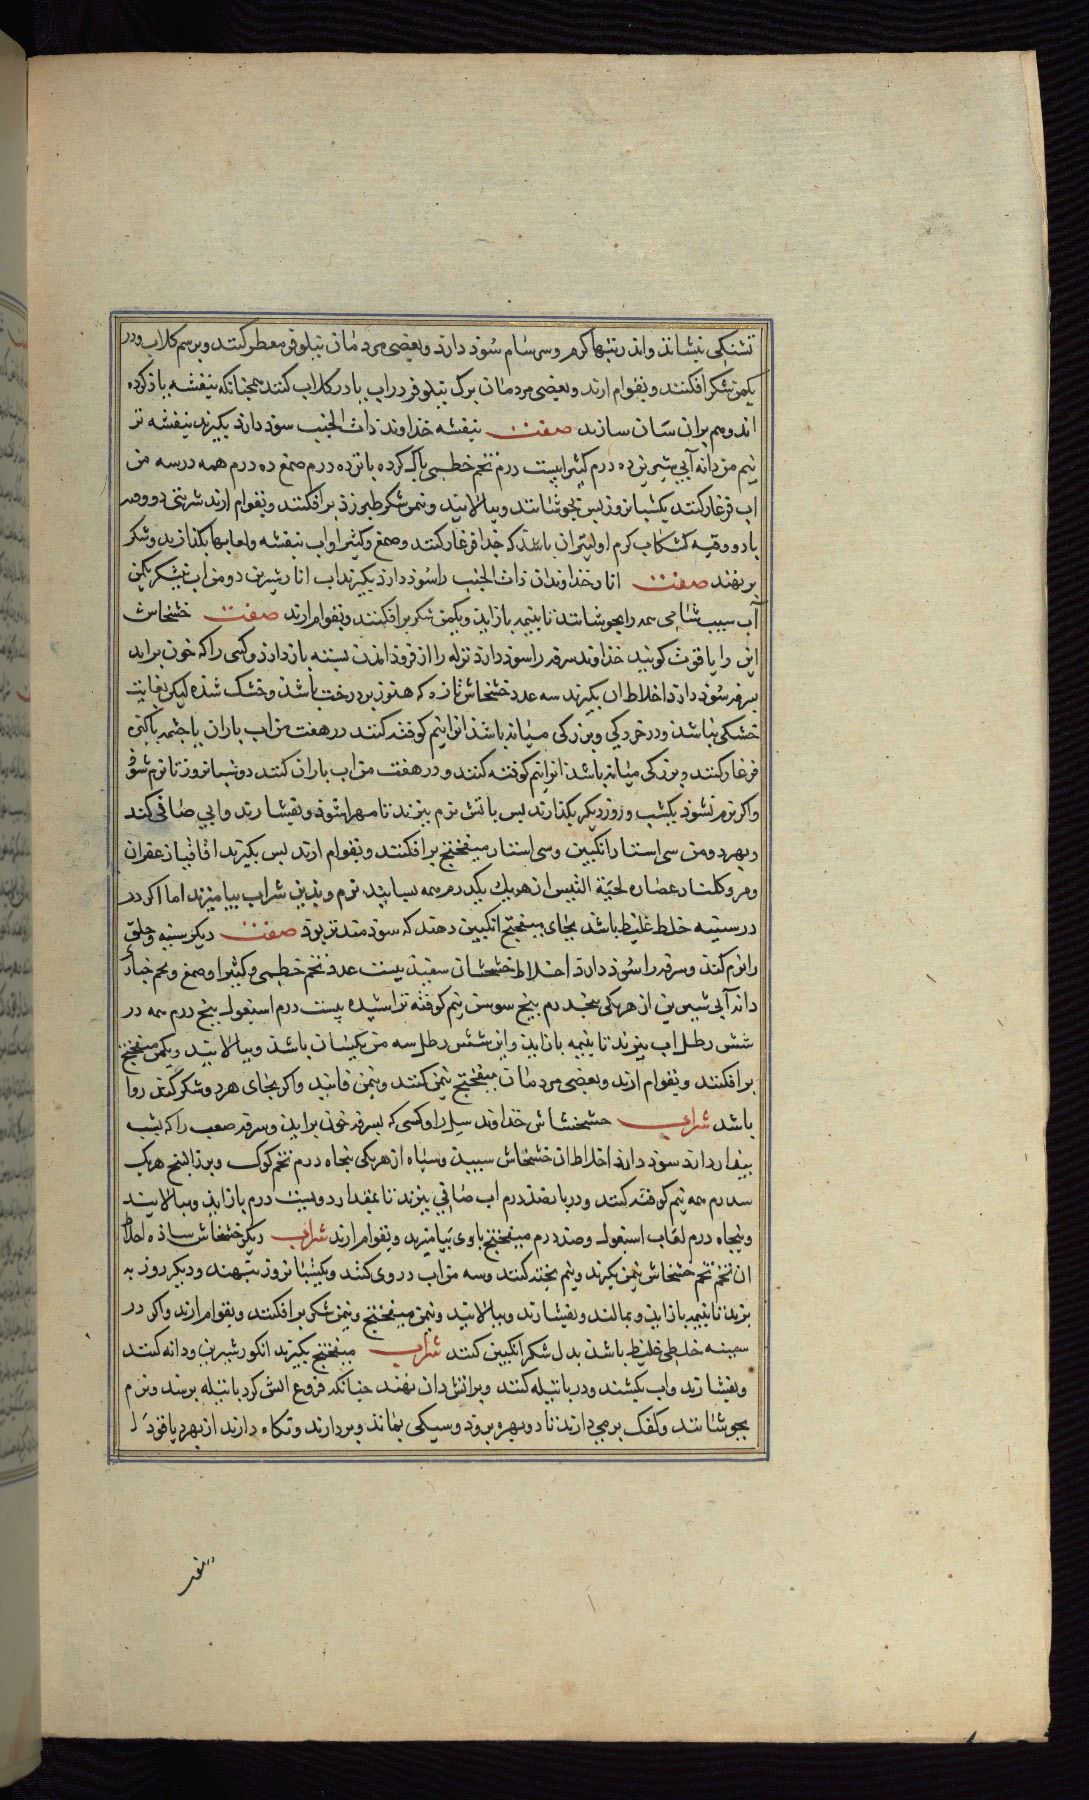 تشنکی بنشاند واندر تبهاء کرم وسرسام سوذ دارد وبعضی مردمان نیلوفر معطر کنند وبرسم کلاب ودر
یکمن شکر افکنند وبقوام ارند وبعضی مردمان برک نیلوفر در اب یا در کلاب کنند همجنانکه بنفشه یاذ کرده
اند وهم بران سان سازند صفت بنفشه خداوند ذات الجنب سوذ دارد بکیرند بنفشه تر
نیم من دانه آبی شیرین ده درم کثیرا بیست درم تخم خطمی باک کرده بانزده درم صمغ ده درم همه در سه من
اب فرغار کنند یکشبانروز بس بجوشانند وببالایند ونیمن شکر طبرزذ برافکنند وبقوام ارند شربتی دو وقیه
با دو وقیه کشکاب کرم اولیتر ان باشذ که جدا فرغار کنند وصمغ وکثیرا واب بنفشه ولعابها بکذازند وشکر
برنهند صفت انار خداوندان ذات الجنب را سوذ دارد بکیرند اب انار شیرین دو من اب نیشکر یکمن
آب سیب شامی همه را بجوشانند تا بنیمه بازاید ویکمن شکر برافکنند وبقوام ارند صفت خشخاش
این را یاقوث کویند خداوند سرفه را سوذ دارد نزله را از فروذ امذن بسینه بازدارد وکسی را که خون براید
بسرفه سوذ دارد اخلاط ان بکیرند سه عدد خشخاش تازه که هنوز بر درخت باشذ وخشک شذه لیکن بغایت
خشکی نباشذ ودر خردکی وبزرکی میانه باشذ انرا نیم کوفته کنند در هفت من اب باران یا جشمه باکیزه
فرغار کنند وبزرکی میانه باشذ انرا نیم کوفته کنند ودر هفت من اب باران کنند دو شبانروز تا نرم شوذ
واکر نرم نشوذ یکشب وروز دیکر بکذارند بس باتش نرم ببزند تا مهرا شوذ وبفشارند وابی صافی کند
وبهر دو من سی استار انکبین وسی استار میفختج برافکنند وبقوام ارند بس بکیرند اقاقیا زعفران
ومر وکلنار عصاره لحیة التیس از هریک یکدرم همه بسایند نرم وبذین شراب بیامیزند اما اکر در
در سینه خلط غلیظ باشد بجای میفختج انکبین دهند که سوذمندتر بوذ صفت دیکر سینه وحلق
را نرم کند وسرفه را سوذ دارد اخلاط خشخاش سفیذ بیست عدد تخم خطمی وکثیرا وصمغ وتخم خیار
دانه آبی شیرین از هریکی بنجدرم بیخ سوسن نیم کوفته تراشیده بیست درم اسبغول بنج درم همه در
شش رطل اب ببزند تا بنیمه بازاید واین شش رطل سه من یکسان باشذ وببالایند ویکمن میفختج
برافکنند وبقوام ارند وبعضی مردمان میفختج نیمن کنند ونیمن فانیذ واکر بجای هردو شکر کنند روا
باشد شراب خشخاش خداوند سل را وکسی که بسرفه خون براید وسرفه صعب را که بشب
بیذار دارد سوذ دارد اخلاط ان خشخاش سبید وسیاه از هریکی بنجاه درم تخم کوک وبزر البنج هریک
سدرم همه نیم کوفته کنند ودر بانصذ درم اب صافی ببزند تا بمقدار دویست درم بازاید وببالایند
وبنجاه درم لعاب اسبغول وصذ درم میفختج باوی بیامیزند وبقوام ارند شراب دیکر خشخاش ساذه اخلاط
ان تخم تخم خشخاش نیمن بکیرند ونیم بخته کنند وسه من اب در وی کنند ویکشبانروز بنهند ودیکر روز به
بزند تا بنیمه بازاید وبمالند وبفشارند وببالایند ونیمن میفختج ونیمن شکر برافکنند وبقوام ارند واکر در
سینه خلطی غلیظ باشذ بدل شکر انکبین کنند شراب میفختج بکیرند انکور شیرین ودانه کنند
وبفشارند واب بکشند ودر باتیله کنند وبر اتش دان نهند جنانکه فروغ اتش کرد باتیله برسد ونرم
بجوشانند وکفک برمی دارند تا دو بهره بروذ وسیکی بماند وبردارند ونکاه دارند از بهر یاقوذ